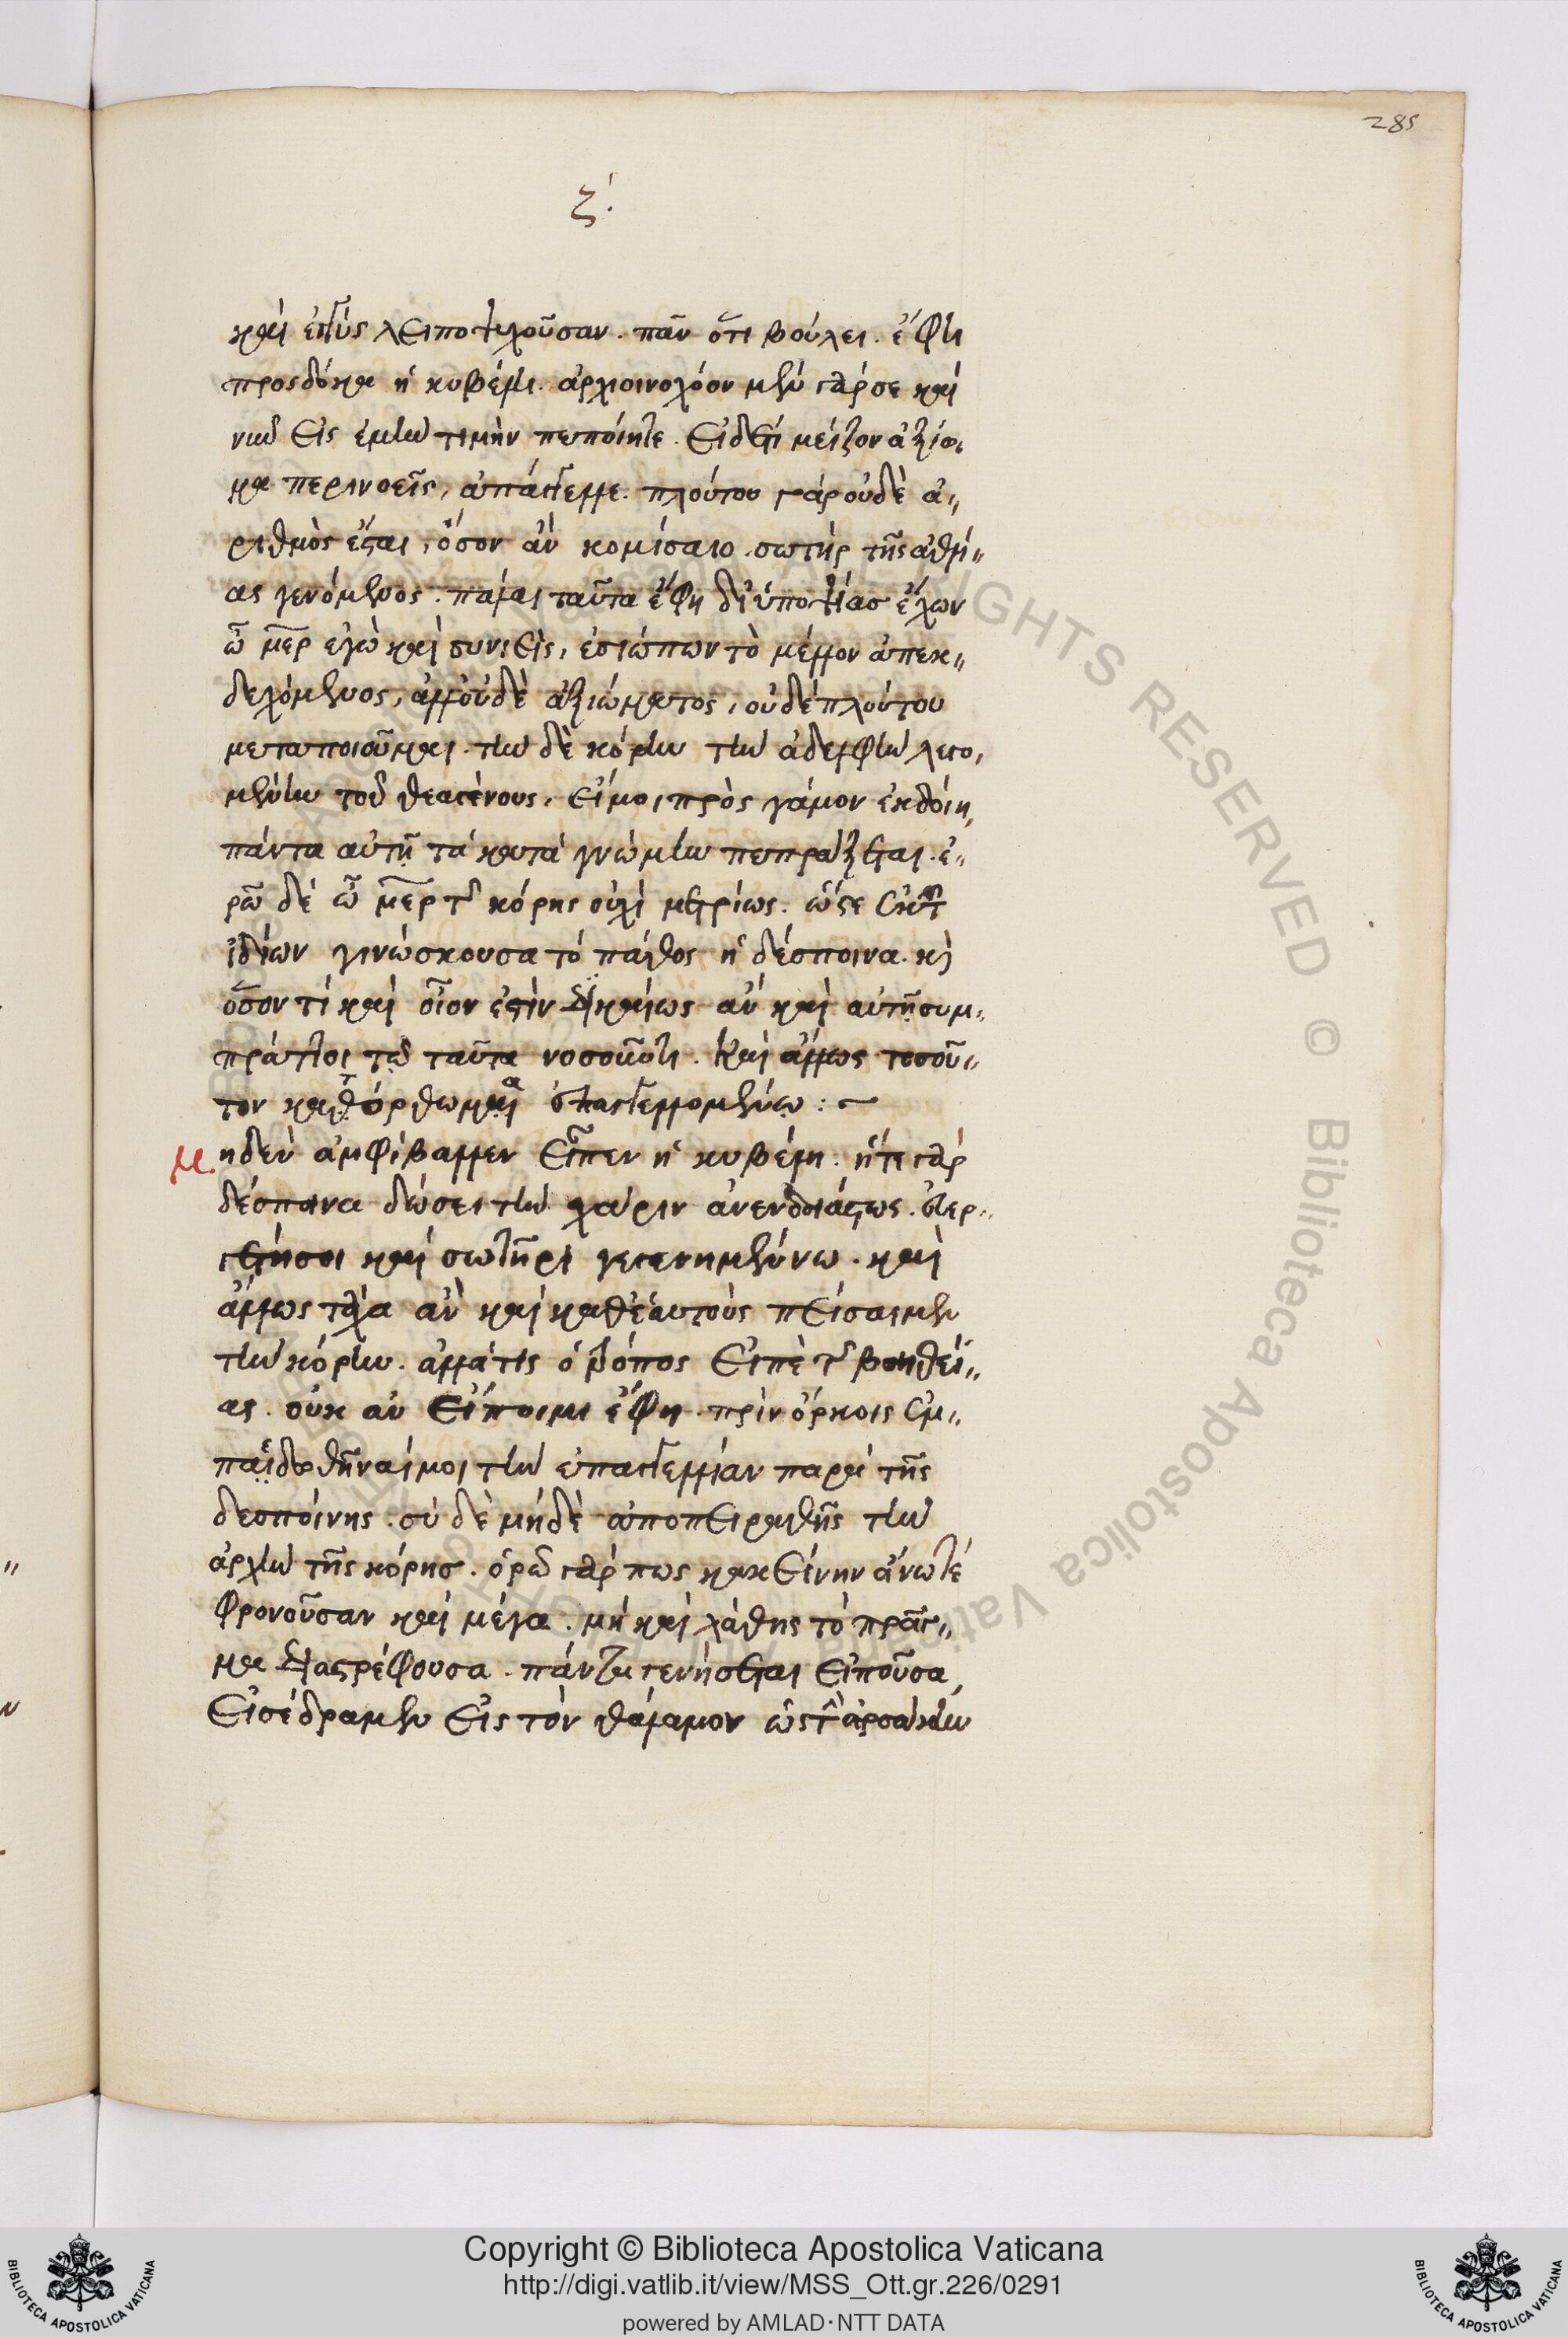 285
ζ΄.
καὶ ἐγγὺς λειποψυχοῦσαν. πᾶν ὅτι βούλει. ἔφη
προσδόκα ἡ κυβέλη. ἀρχιοινοχόον μὲν γάρ σε καὶ
νῦν εἰς ἐμὴν τιμὴν πεποίηται. εἰ δέ τι μεῖζον ἀξίω,
μα περινοεῖς, ἀπάγγελλε. πλούτου γὰρ οὐδὲ ἀ,,
ριθμὸς ἔσται, ὅσον ἂν κομίσαιο. σωτὴρ τῆς ἀθλί,,
ας γενόμενος. πάλαι ταῦτα ἔφη δι' ὑποψίας ἔχων
ὦ μῆτερ ἐγὼ καὶ συνιεὶς, ἐσιώπων τὸ μέλλον ἀπεκ,,
δεχόμενος, ἀλλ' οὐδὲ ἀξιώματος, οὐδὲ πλούτου
μεταποιοῦμαι. τὴν δὲ κόρην τὴν ἀδελφὴν λεγο,
μένην τοῦ θεαγένους, εἴ μοι πρὸς γάμον ἐκδοίη,
πάντα αὐτῇ τὰ κατὰ γνώμην πεπράξεται. ἐ,,
ρῶ δὲ ὦ μῆτερ τῆς κόρης οὐχὶ μετρίως. ὥστε ἐκ τῶν
ἰδίων γινώσκουσα τὸ πάθος ἡ δέσποινα. καὶ
ὅσον τί καὶ οἷον ἐστὶν δικαίως ἂν καὶ αὐτὴ συμ,,
πράττοι τῷ ταῦτα νοσοῦντι. καὶ ἄλλως τοσοῦ,,
τον κατόρθωμα ἐπαγγελλομένῳ:~
Μηδὲν ἀμφίβαλλεν εἶπεν ἡ κυβέλη. ἥτε γὰρ
δέσποινα δώσει τὴν χάριν ἀνενδοιάστως. εὐερ,,
γέτῃ σοι καὶ σωτῆρι γεγενημένῳ. καὶ
ἄλλως τάχα ἂν καὶ καθ' ἑαυτοὺς πείσαιμεν
τὴν κόρην. ἀλλὰ τίς ὁ τρόπος εἰπὲ τῆς βοηθεί,,
ας. οὐκ ἂν εἴποιμι ἔφη. πρὶν ὅρκοις ἐμ,,
πεδωθῆναί μοι τὴν ἐπαγγελίαν παρὰ τῆς
δεσποίνης. σὺ δὲ μηδὲ ἀποπειραθῇς τὴν
ἀρχὴν τῆς κόρης. ὁρῶ γάρ πως κακείνην ἄνω τέ
φρονοῦσαν καὶ μέγα. μὴ καὶ λάθῃς τὸ πρᾶγ,,
μα διαστρέφουσα. πάντα γενήσεται εἰποῦσα,
εἰσέδραμεν εἰς τὸν θάλαμον ὡς τὴν ἀρσάκην
Copyright © Biblioteca Apostolica Vaticana
http://digi.vatlib.it/view/MSS_Ott.gr.226/0291
powered by AMLAD·NTT DATA